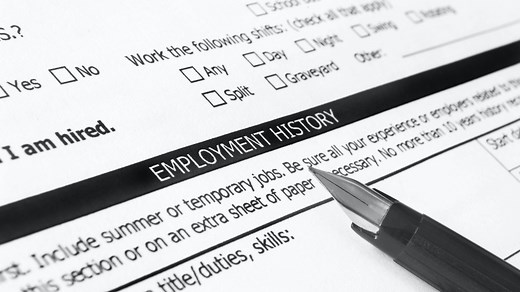 School
S.? Work the following shifts: (check all that apply)
Yes No Any Day Night Swing Rotating
Split Graveyard Other:
I am hired.
EMPLOYMENT HISTORY
rst. Include summer or temporary jobs. Be sure all your experience or employers related to this
this section or on an extra sheet of paper necessary. No more than 10 year history
title/duties, skills:
Start